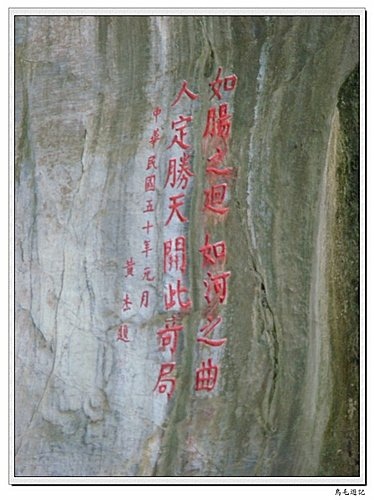 如腸之迴如河之曲
人定勝天開此奇局
中華民國五十年元月
黃杰題
鳥毛遊記